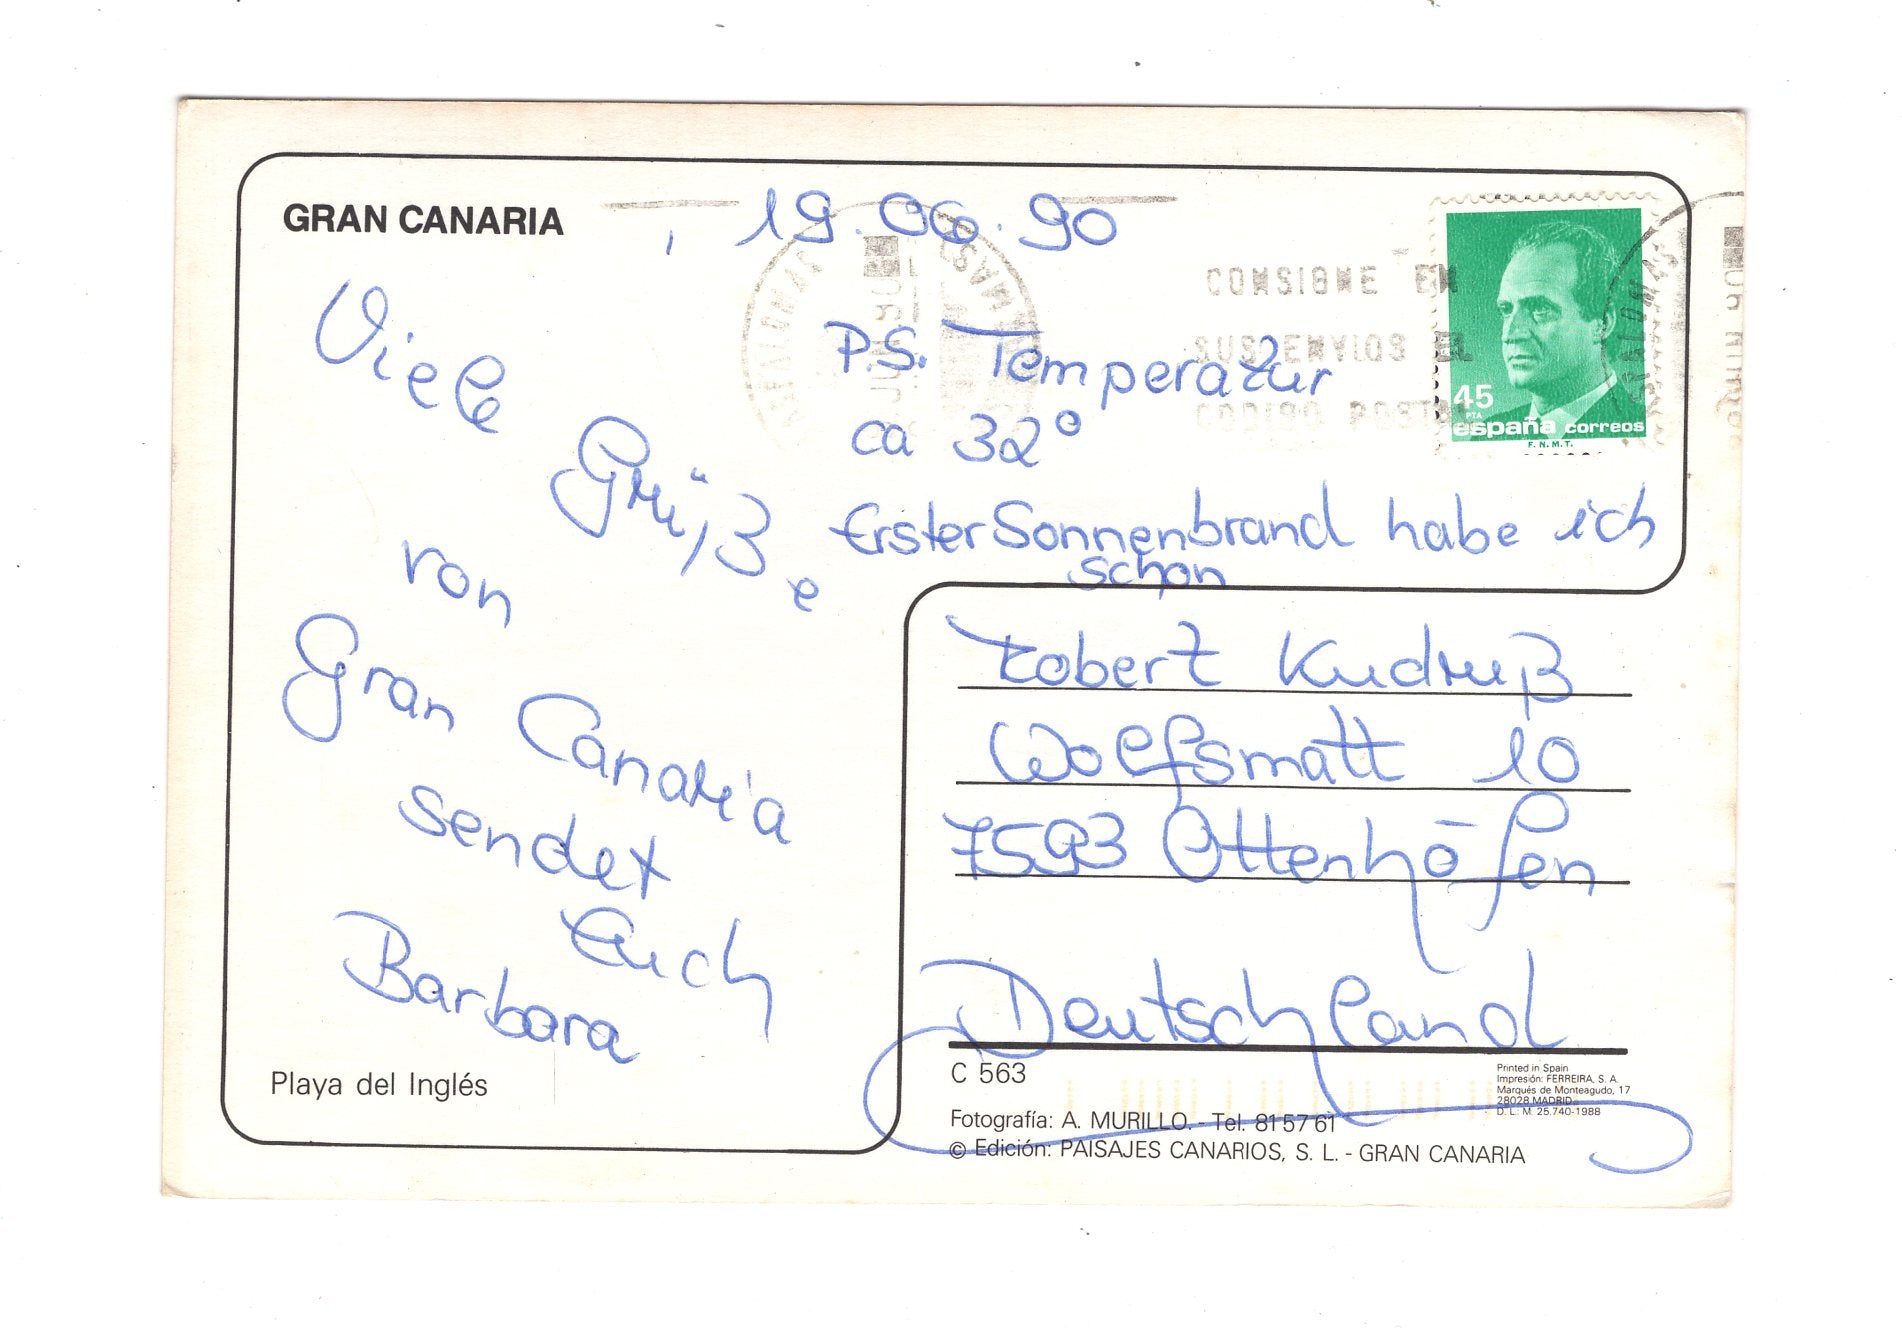 GRAN CANARIA
, 19.06.90
Viele
Grüße
von
Gran Canaria
sendet
Euch
Barbara
P.S. Temperatur
ca 32°
Erster Sonnenbrand habe ich
schon
CONSIGNE EN
SUS ENVIOS EL
CODIGO POSTAL
45
PTA
españa correos
F.N.M.T.
Robert Kudruß
Wolfsmatt 10
7593 Ottenhöfen
Deutschland
Playa del Inglés
C 563
Fotografía: A. MURILLO. - Tel. 81 57 61
© Edición: PAISAJES CANARIOS, S. L. - GRAN CANARIA
Printed in Spain
Impresión: FERREIRA, S. A.
Marqués de Monteagudo, 17
28028 MADRID
D. L.: M. 25.740-1988